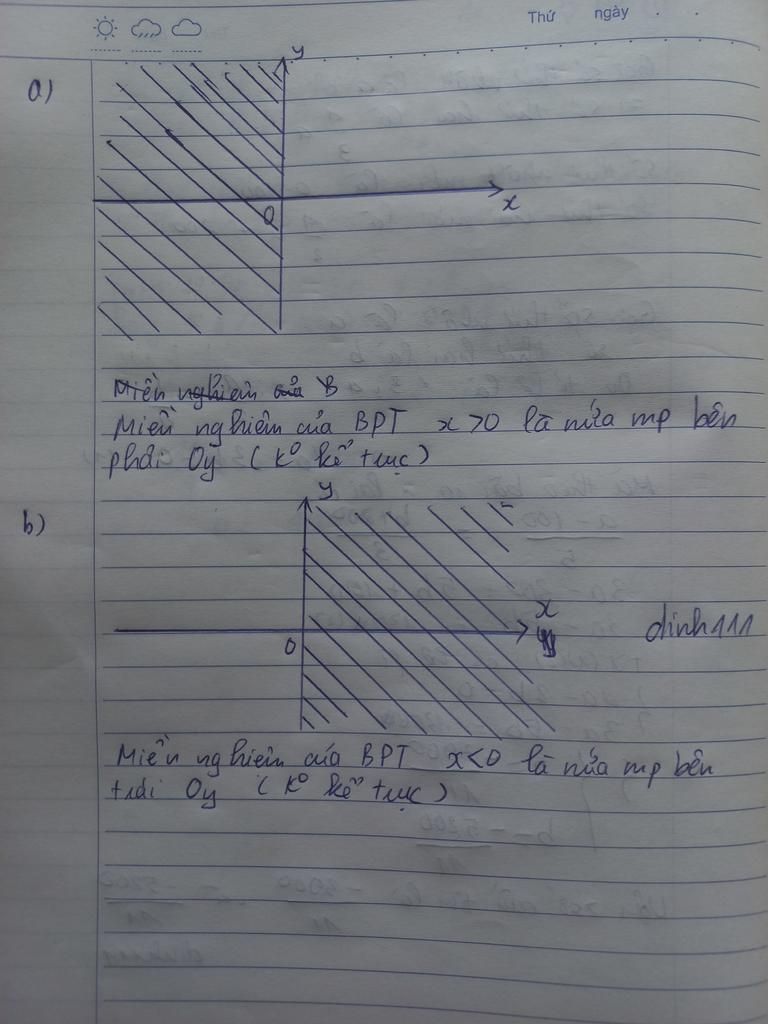 Thứ ngày . .
a)
y
O
x
Miền nghiệm của B
Miền nghiệm của BPT x>0 là nửa mp bên
phải Oy (K° kể trục)
y
b)
x
O
dinh111
Miền nghiệm của BPT x<0 là nửa mp bên
trái Oy (K° kể trục)